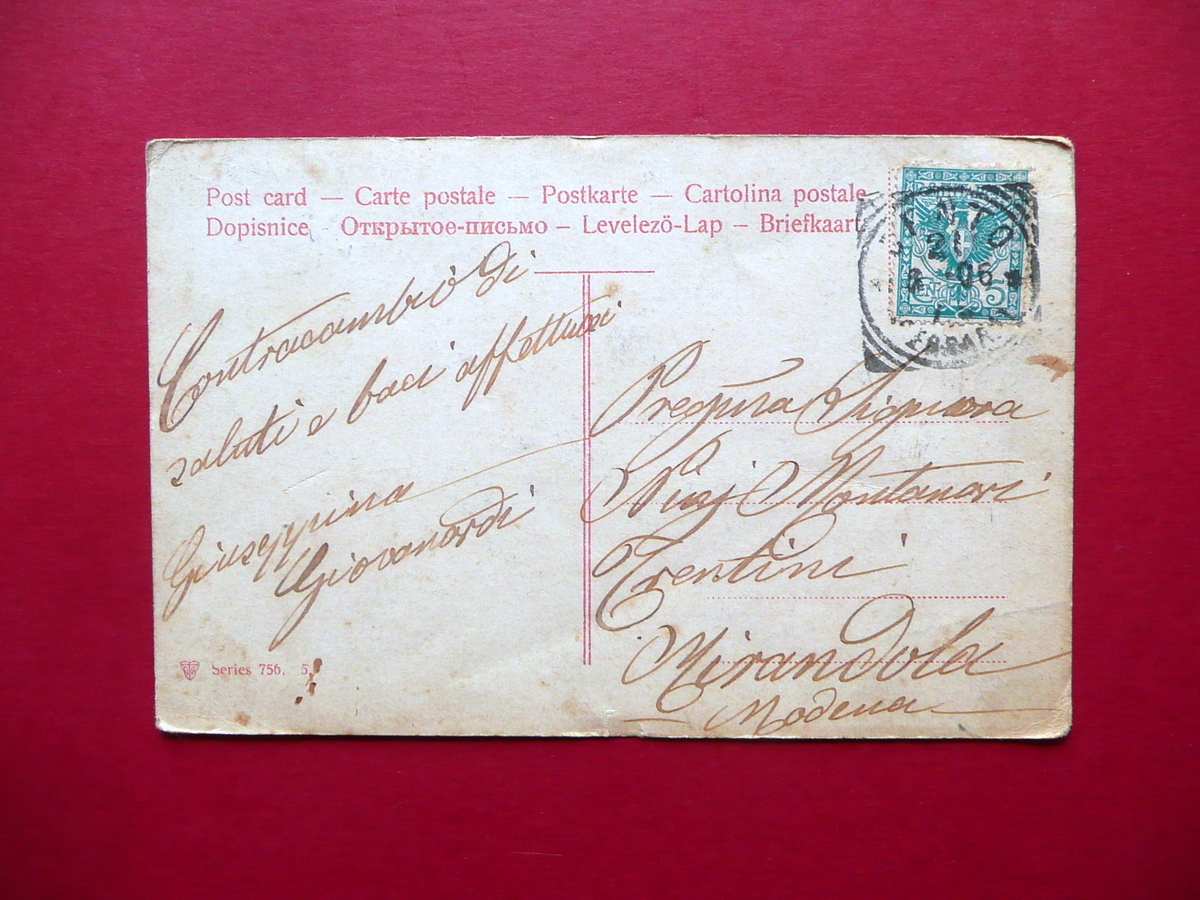 Post card — Carte postale — Postkarte — Cartolina postale
Dopisnice — Открытое-письмо — Levelező-Lap — Briefkaart
CENTO
21
06
FERRARA
CEN 5
Contracambio di
saluti e baci affettuosi
Giuseppina
Giovanardi
Pregma Signora
Montanari
Trentini
Mirandola
Modena
Series 756. 5